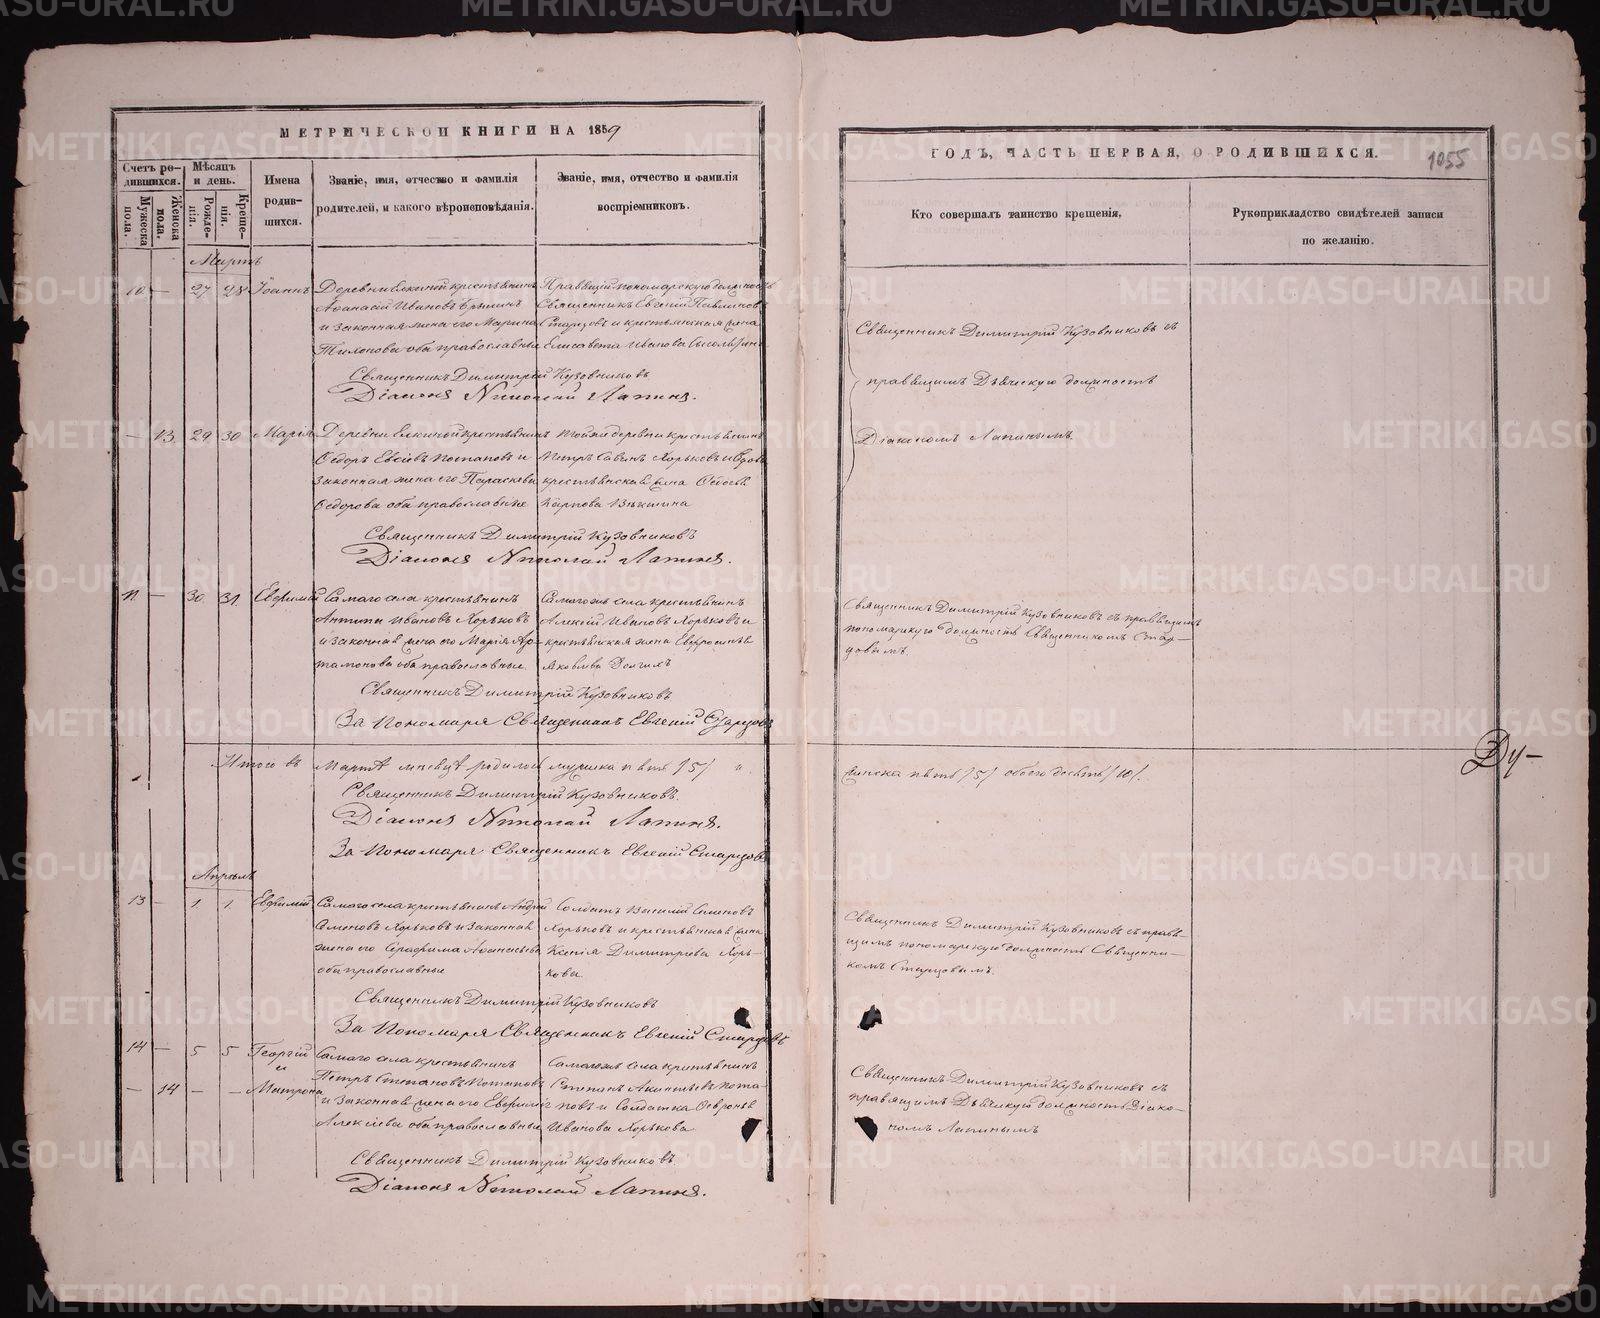 МЕТРИЧЕСКОЙ КНИГИ НА 1859
Счетъ ро-
дившихся.
Мужеска
пола.
Женска
пола.
Мѣсяцъ
и день.
Рожде-
нія.
Креще-
нія.
Имена
родив-
шихся.
Званіе, имя, отчество и фамилія
родителей, и какого вѣроисповѣданія.
Званіе, имя, отчество и фамилія
воспріемниковъ.
Мартъ
27 28 Іоаннъ
Деревни крестьянинъ
Аѳанасій Ивановъ
и законная жена его Марина
оба православные
Правящій пономарскую должность
Священникъ Евгеній Павлиновъ
Старцовъ и крестьянская жена
Елисавета Иванова
Священникъ Димитрій Кузовниковъ
Діаконъ Николай Лапинъ.
— 13 29 30 Марія
Деревни крестьянинъ
Ѳедоръ Потаповъ и
законная жена его Параскева
Ѳедорова оба православные
Тойже деревни крестьянинъ
Петръ Савинъ Хорьковъ и
крестьянская жена
Карпова
Священникъ Димитрій Кузовниковъ
Діаконъ Николай Лапинъ.
— 30 31 Евфимій
Самаго села крестьянинъ
Антипъ Ивановъ Хорьковъ
и законная жена его Марія Ар-
тамонова оба православные.
Самагожъ села крестьянинъ
Алексій Ивановъ Хорьковъ и
крестьянская жена Евфросинья
Яковлева Долгихъ
Священникъ Димитрій Кузовниковъ
За Пономаря Священникъ Евгеній Старцовъ
Итого въ Мартѣ мѣсяцѣ родилось мужска пять /5/
Священникъ Димитрій Кузовниковъ.
Діаконъ Николай Лапинъ.
За Пономаря Священникъ Евгеній Старцовъ
Апрѣль
13 — 1 1 Евфимій
Самаго села крестьянинъ Андрей
Семеновъ Хорьковъ и законная
жена его Серафима Аѳанасьева
оба православные
Солдатъ Василій Семеновъ
Хорьковъ и крестьянская жена
Ксенія Димитріева Хорь-
кова.
Священникъ Димитрій Кузовниковъ
За Пономаря Священникъ Евгеній Старцовъ
14 — 5 5 Георгій
и
— 14 — — Матрона
Самаго села крестьянинъ
Петръ Степановъ Потаповъ
и законная жена его Евфимія
Алексіева оба православные
Самагожъ села крестьянинъ
Степанъ Пота-
повъ и Солдатка Февронія
Иванова Хорькова
Священникъ Димитрій Кузовниковъ.
Діаконъ Николай Лапинъ.
ГОДЪ, ЧАСТЬ ПЕРВАЯ, О РОДИВШИХСЯ.
1055
Кто совершалъ таинство крещенія,
Рукоприкладство свидѣтелей записи
по желанію.
Священникъ Димитрій Кузовниковъ съ
правящимъ Дьяческую должность
Діакономъ Лапинымъ.
Священникъ Димитрій Кузовниковъ съ правящимъ
пономарскую должность Священникомъ Стар-
цовымъ.
женска пять /5/ обоего десять /10/.
Ду-
Священникъ Димитрій Кузовниковъ съ правя-
щимъ пономарскую должность Священни-
комъ Старцовымъ.
Священникъ Димитрій Кузовниковъ съ
правящимъ Дьяческую должность Діако-
номъ Лапинымъ
METRIKI.GASO-URAL.RU